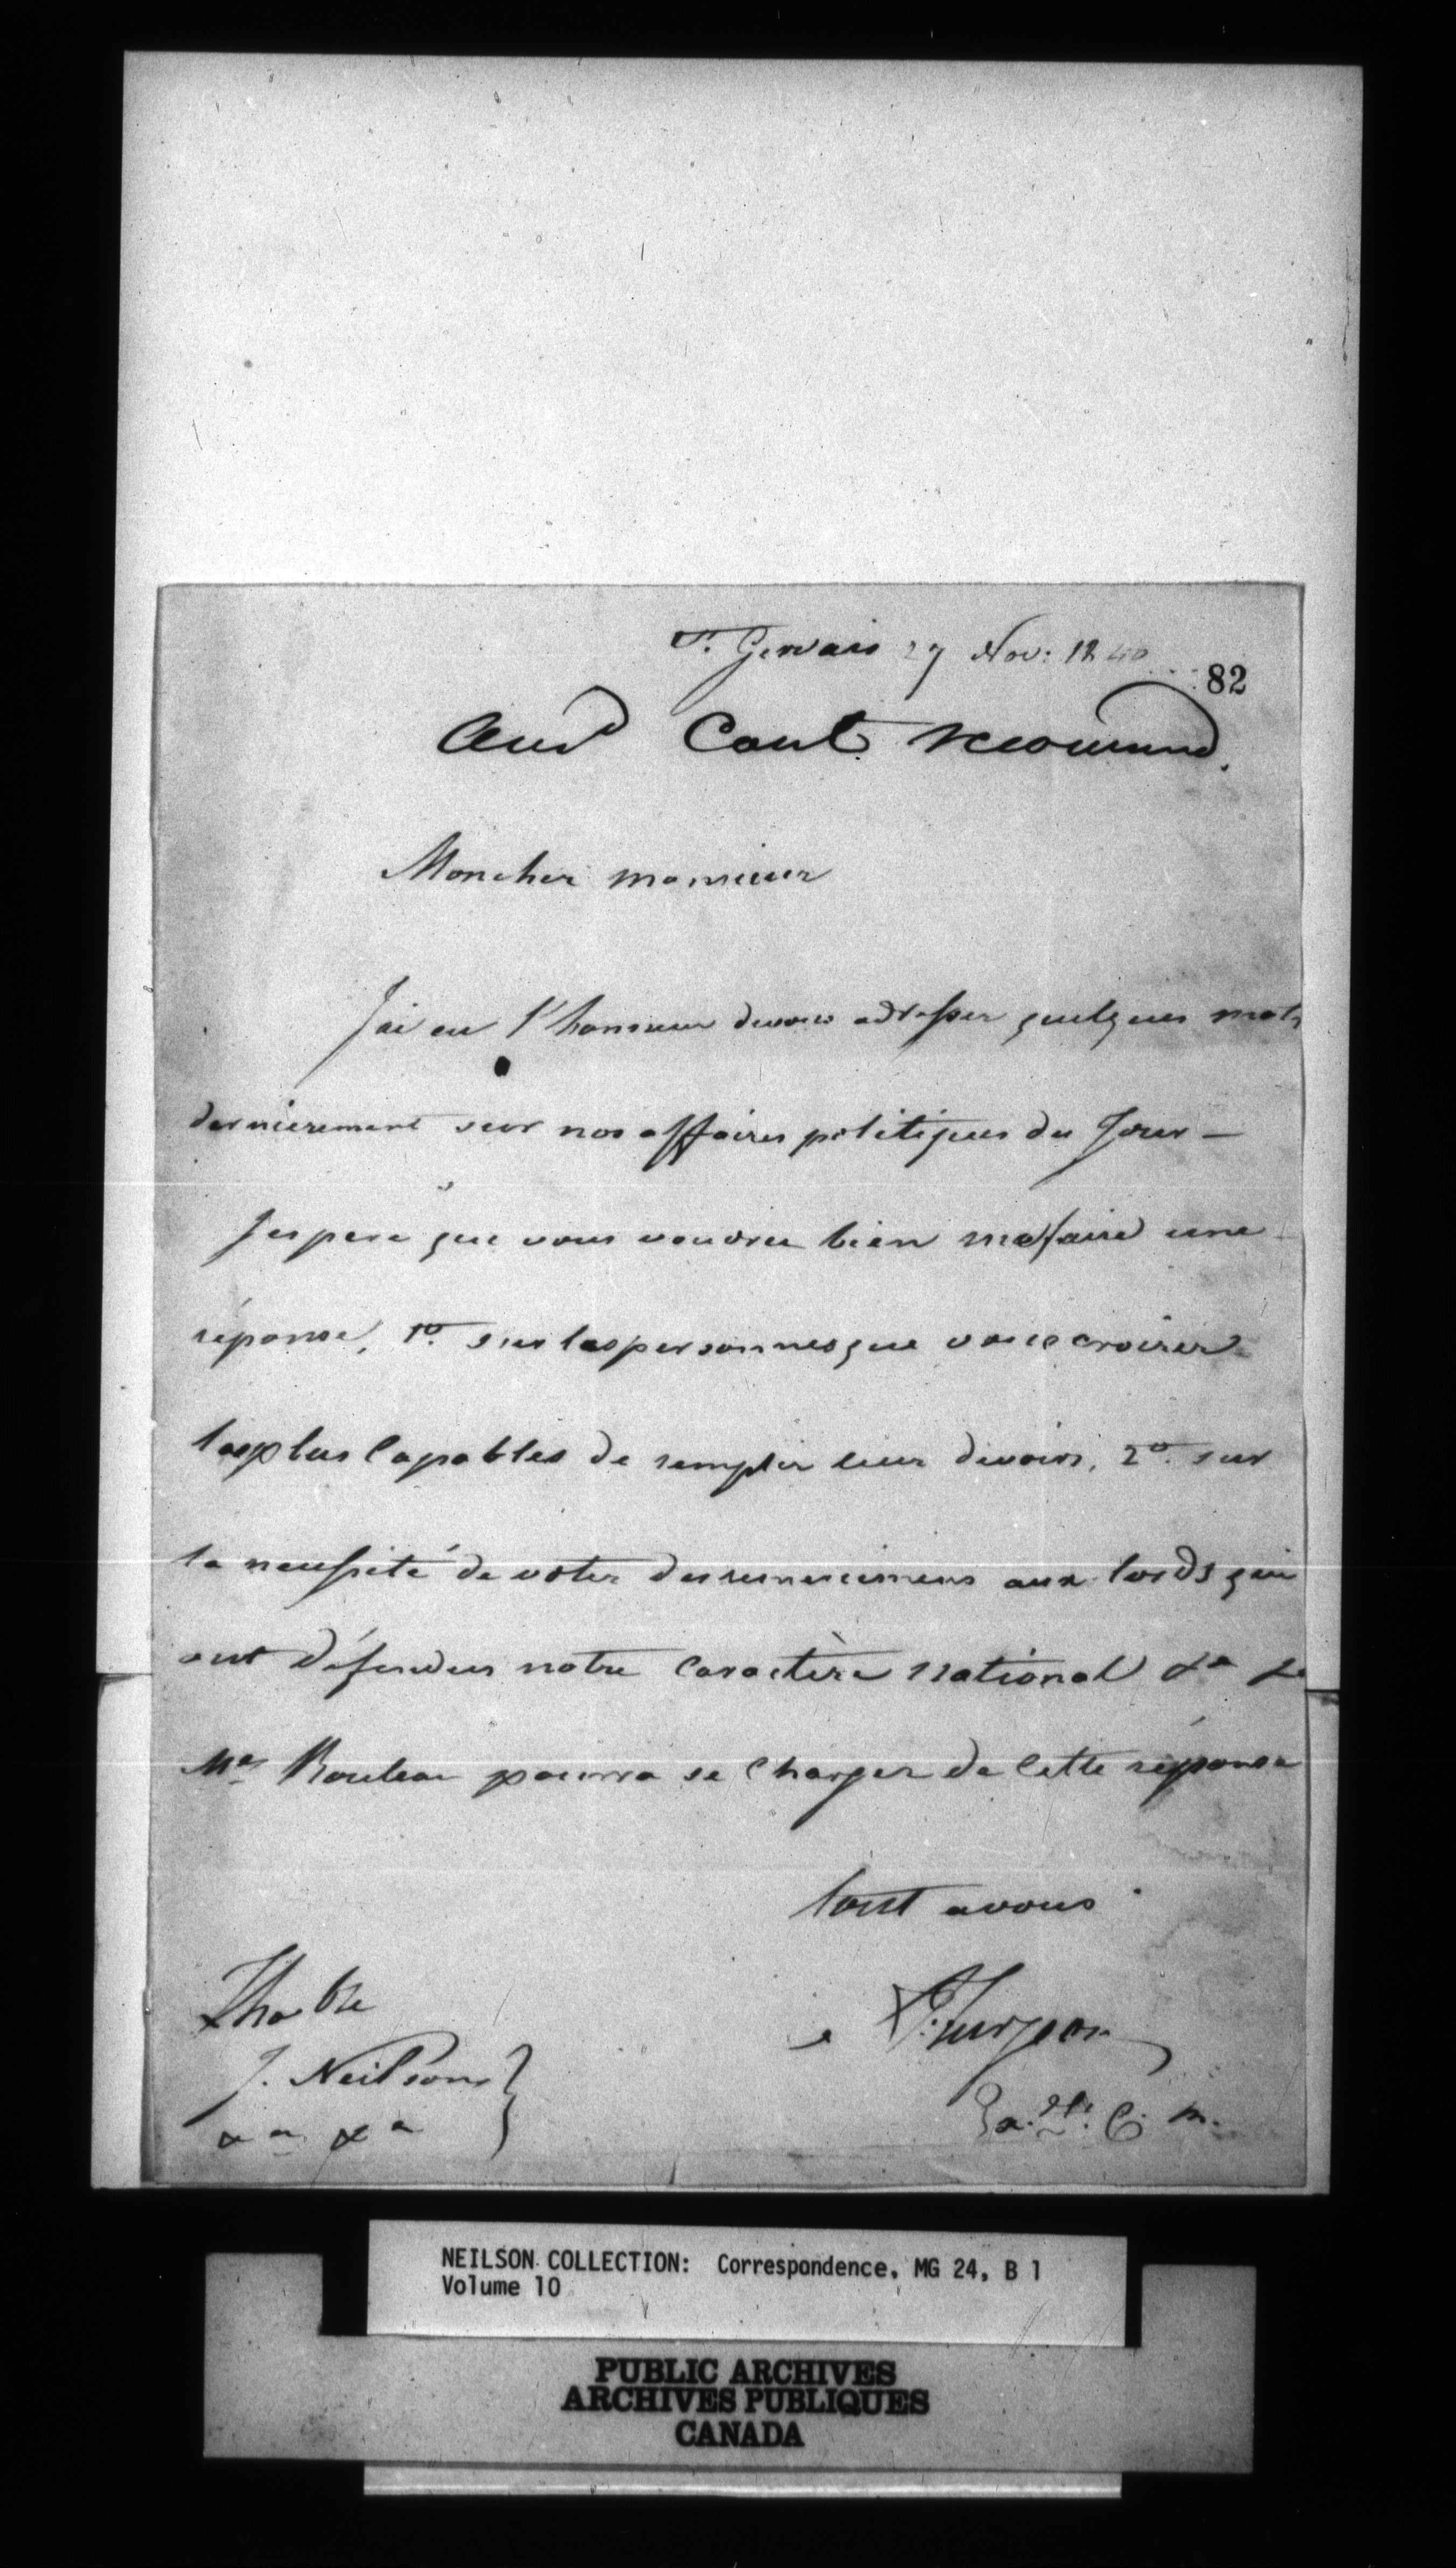 St. Gervais 27 Nov: 1840
82
Mon cher monsieur
J'ai eu l'honneur devous adresser quelques mots
dernierement sur nos affaires politiques du Jour —
J'espere que vous voudrez bien me faire une
réponse, 1o. sur les personnes que vous croirez
les plus Capables de remplir leur devoirs, 2o. sur
la necessité de voter des remerciemens aux lords qui
ont défendus notre Caractère National &a &a
Mr. Rouleau pourra se Charger de Cette réponse
tout avous
Lhoble
J. Neilson
&a &a
Turgeon
NEILSON COLLECTION: Correspondence, MG 24, B 1
Volume 10
PUBLIC ARCHIVES
ARCHIVES PUBLIQUES
CANADA